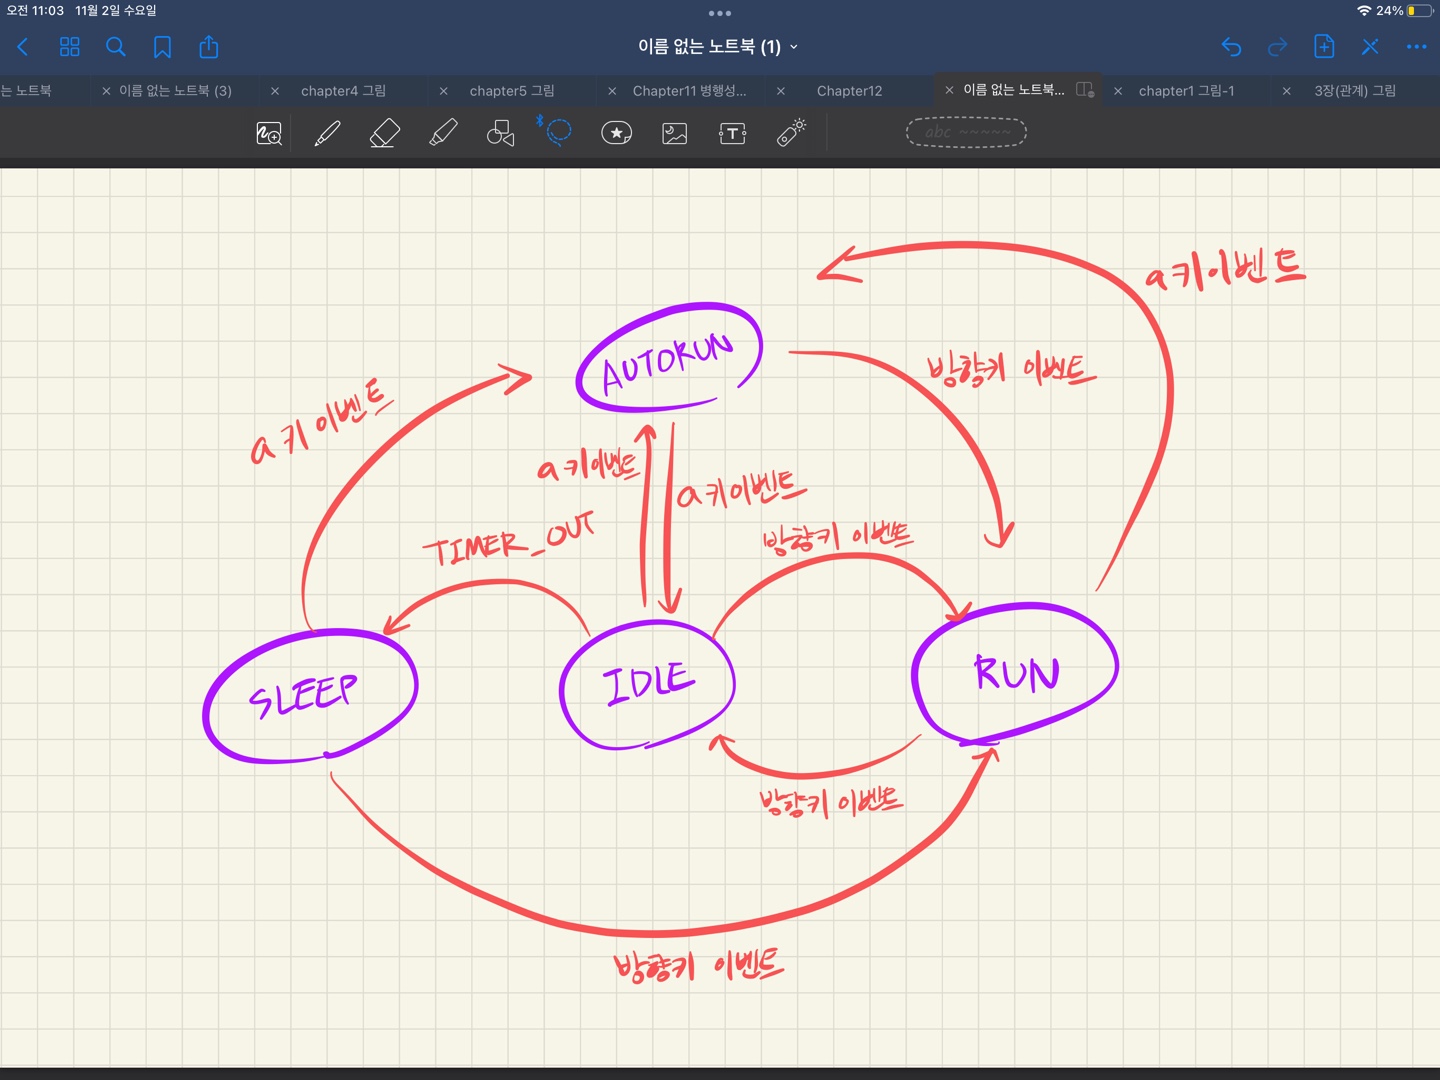 오전 11:03 11월 2일 수요일
24%
이름 없는 노트북 (1)
는 노트북
이름 없는 노트북 (3)
chapter4 그림
chapter5 그림
Chapter11 병행성...
Chapter12
이름 없는 노트북...
chapter1 그림-1
3장(관계) 그림
abc ~~~~~
a키이벤트
AUTORUN
방향키 이벤트
a키 이벤트
a키이벤트
a키이벤트
TIMER_OUT
방향키 이벤트
SLEEP
IDLE
RUN
방향키 이벤트
방향키 이벤트